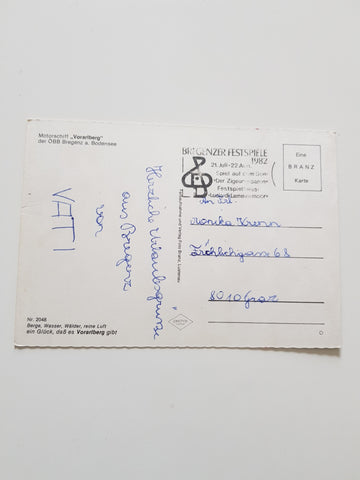 Motorschiff „Vorarlberg"
der ÖBB Bregenz a. Bodensee
BREGENZER FESTSPIELE
1982
21. Juli - 22. Aug.
Spiel auf dem See
Der Zigeunerbaron
Festspielhaus
Eine
BRANZ
Karte
Herzliche Urlaubsgrüsse
aus Bregenz
von
VATI
An Frl.
Monika Krenn
Fröhlichgasse 68
8010 Graz
Nr. 2048
Berge, Wasser, Wälder, reine Luft
ein Glück, daß es Vorarlberg gibt